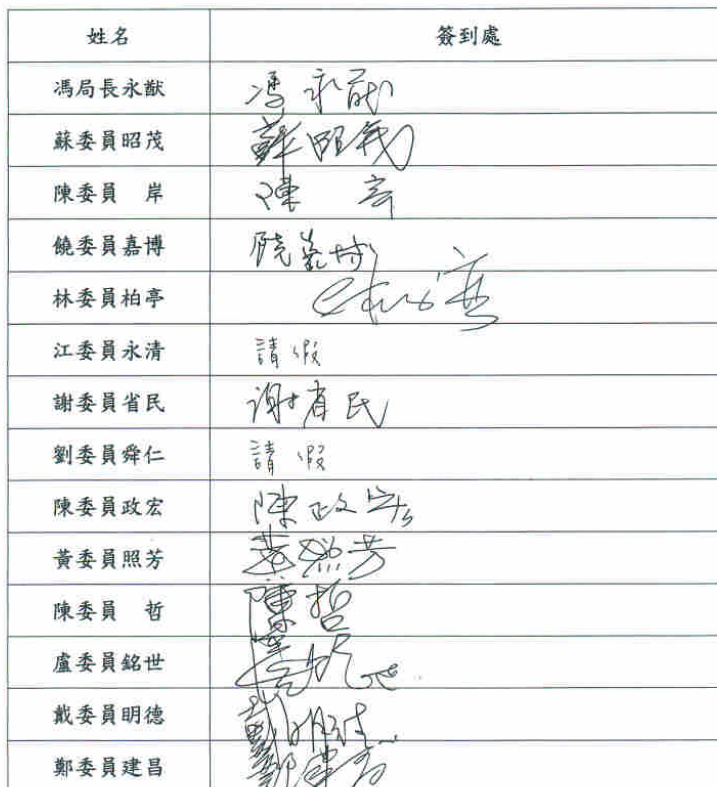 姓名 簽到處
馮局長永猷 馮永猷
蘇委員昭茂 蘇昭茂
陳委員 岸 陳 岸
饒委員嘉博 饒嘉博
林委員柏亭 林柏亭
江委員永清 請假
謝委員省民 謝省民
劉委員舜仁 請假
陳委員政宏 陳政宏
黃委員照芳 黃照芳
陳委員 哲 陳哲
盧委員銘世 盧銘世
戴委員明德 戴明德
鄭委員建昌 鄭建昌